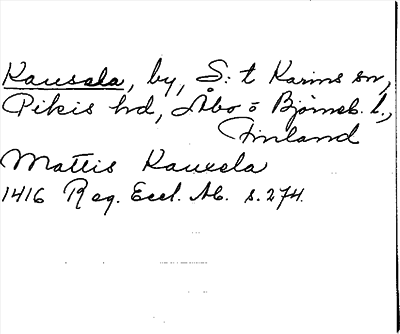 Kausala, by, S:t Karins sn,
Pikis hd, Åbo o Björneb. l.,
Finland
Mattis Kauxela
1416 Reg. Eccl. Ab. s. 274.